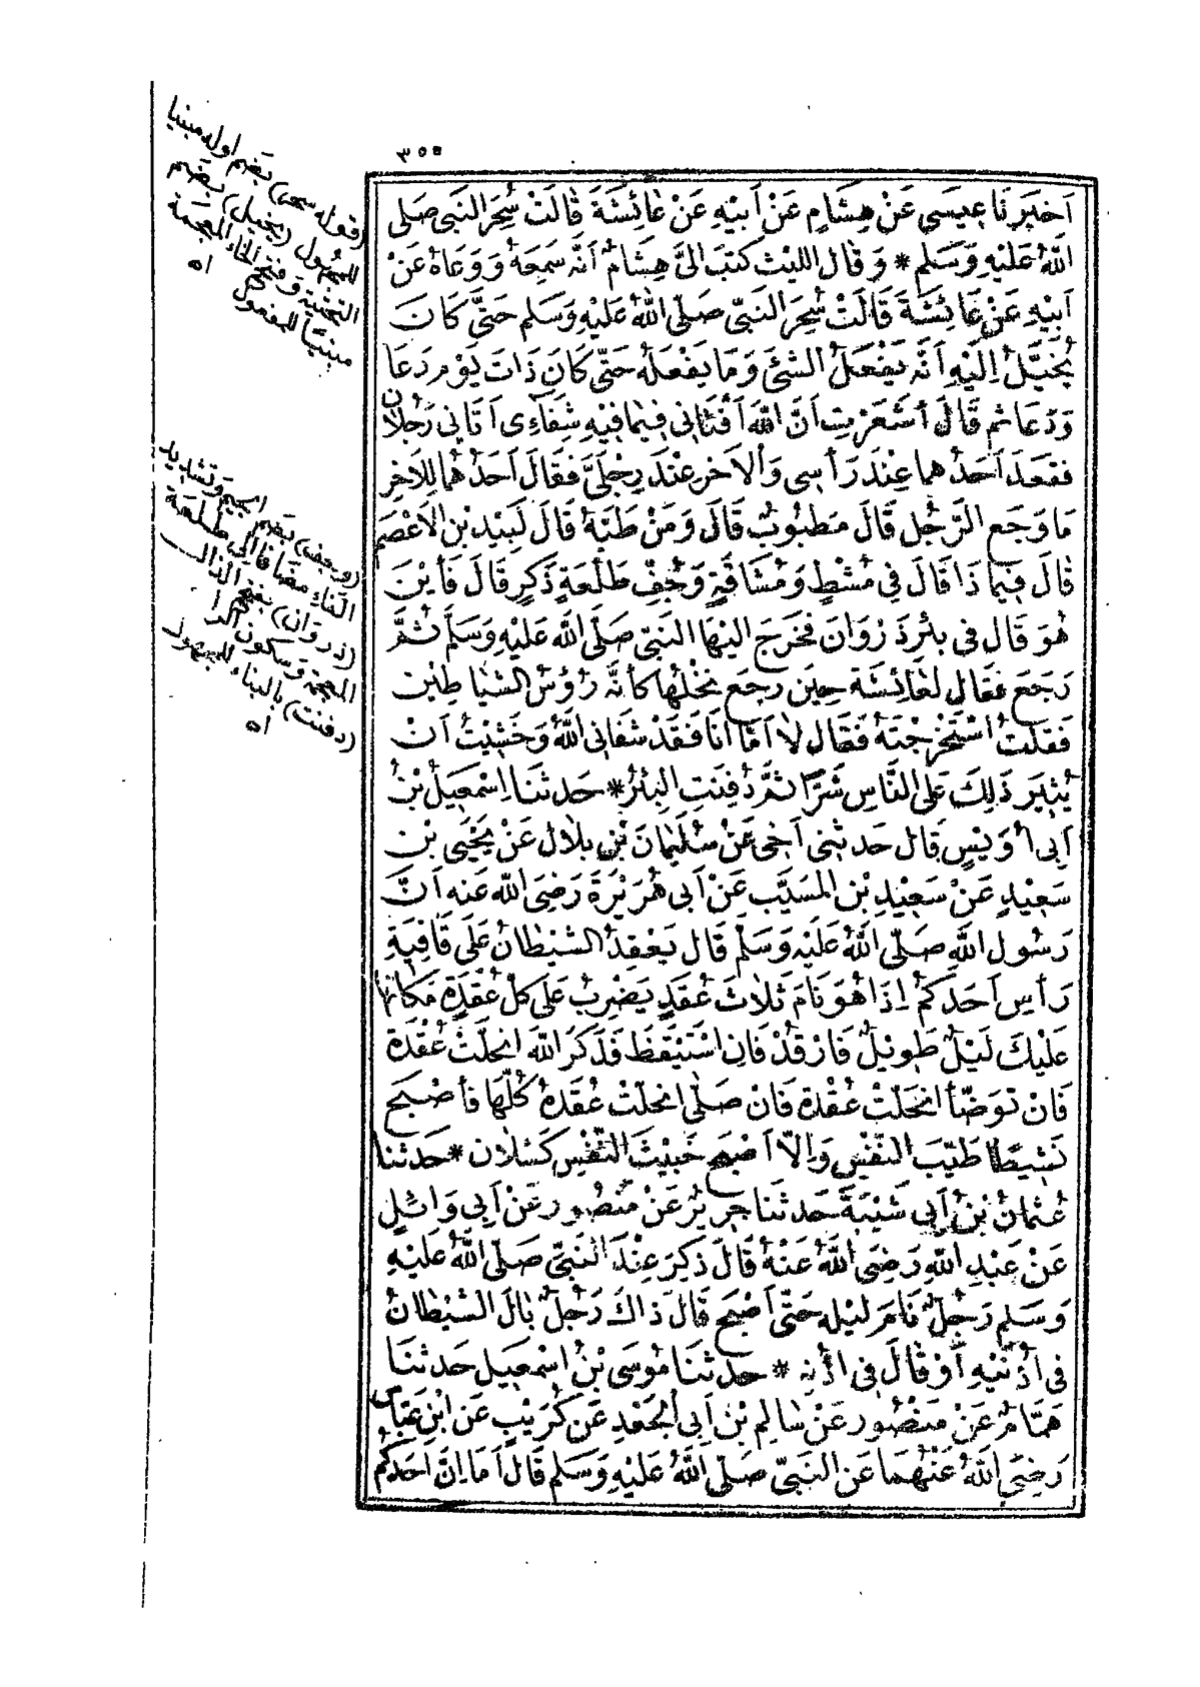 ٣٥٥
اَخْبَرَنَا عِيسَى عَنْ هِشَامٍ عَنْ اَبِيْهِ عَنْ عَائِشَةَ قَالَتْ سُحِرَ النَّبِى صَلى
اللهُ عَلَيْهِ وَسَلم * وَقَال الليْث كَتَبَ الىَّ هِشَامٌ اَنَّه سَمِعَهُ وَوَعَاهُ عَنْ
اَبِيْهِ عَنْ عَائِشَةَ قَالَتْ سُحِرَ النَبِىّ صَلّى اللهُ عَلَيْهِ وَسَلم حَتَّى كَانَ
يُخَيَّلُ اِلَيْهِ اَنَّه يَفْعَلُ الشئَ وَمَا يَفْعَلهُ حَتّى كَانَ ذَاتَ يَوْم دَعَا
وَدَعَا ثم قَالَ أَشَعَرْتِ اَنَّ اللهَ اَفْتَانِى فِيمَا فِيْهِ شِفَاءِى اَتَانِى رَجُلَانِ
فقعَدَ اَحَدُهما عِنْدَ رَأسِى وَالْاَخر عِنْدَ رِجْلَىَّ فَقَالَ اَحَدُهُمَا لِلآخِرِ
مَا وَجَع الرَّجُل قَالَ مَطبُوبٌ قَالَ وَمَنْ طَبَّهُ قَالَ لَبِيْد بن الاَعْصَم
قَالَ فِيمَا ذَا قَالَ فِى مُشطٍ وَمُشَاقَةٍ وَجُفِّ طَلْعَةٍ ذَكَرٍ قَالَ فَأيْنَ
هُوَ قَال فى بئرِ ذَرْوَانَ فَخَرَجَ اليْهَا النَبِىّ صَلّى الله عَلَيْهِ وَسَلَّم ثُمَّ
رَجَعَ فقَال لعَائِشَة حِيْن رجَع نخْلُهَا كَأنَّه رُؤُسُ الشيَاطِيْن
فَقلتُ اسْتَخْرَجْتَهُ فقَال لاَ اَمَّا اَنَا فَقَدْ شفَانِى اللهُ وَخَشِيْتُ اَنْ
يُثِيْر ذَلِكَ عَلى النَّاسِ شَرًّا ثمَّ دُفِنَتِ البِئْرُ * حَدثنَا اِسْمعِيلُ بْنُ
اَبِى اُوَيْسٍ قَال حَدثنِى اَخِى عَنْ سُلَيْمَانَ بْنِ بِلاَلٍ عَنْ يَحْيَى بْنِ
سَعِيْدٍ عَنْ سَعِيْدِ بْنِ المسَيَّب عَنْ اَبِى هُرَيْرَةَ رَضِىَ الله عَنه اَنَّ
رَسُول اللهِ صَلّى اللهُ عَلَيْهِ وَسَلّم قَال يَعْقِدُ الشيْطَانُ عَلَى قَافِيَةِ
رَأسِ اَحَدِكُمْ اِذَا هُوَ نَامَ ثَلَاثَ عُقَدٍ يَضْرِبُ عَلى كلِّ عُقْدَةٍ مَكَانَهَا
عَلَيْكَ لَيْلٌ طَوِيْلٌ فَارْقُدْ فَانِ اسْتَيْقَظَ فَذَكَرَ اللهَ انحلَّتْ عُقْدَة
فَانْ توَضَّأ انحَلَّتْ عُقْدة فَانْ صَلّى انحلتْ عُقَدهُ كُلّهَا فأصْبَح
نَشِيْطًا طَيِّبَ النَّفْسِ وَاِلاّ اَصْبَح خَبِيْثَ النَّفْسِ كَسْلَان * حَدثنَا
عُثمَانُ بْنُ اَبِى شَيْبَةَ حَدثنَا جرِيْرٌ عَنْ مَنْصُورٍ عَنْ اَبِى وَائِلٍ
عَنْ عَبْدِ اللهِ رَضِىَ اللهُ عَنْهُ قَالَ ذُكِرَ عِنْدَ النَّبِىّ صَلّى اللهُ عَلَيْهِ
وَسَلم رَجُلٌ نَامَ لَيْله حَتَّى اَصْبَح قَال ذاكَ رَجُلٌ بَالَ الشيْطَانُ
فى اُذُنَيْهِ اَوْ قَالَ فِى اذُنِه * حدثنَا مُوسَى بْنُ اسْمعِيل حَدثنَا
هَمَّامٌ عَنْ مَنْصُورٍ عَنْ سَالِم بْنِ اَبِى الْجَعْدِ عَن كُرَيْبٍ عَن ابْنِ عَبَّاسٍ
رَضِىَ اللهُ عَنْهُمَا عَنِ النَبِىّ صَلّى اللهُ عَلَيْهِ وَسَلم قَالَ اَمَا اِنَّ اَحَدَكُم
(قوله سحر) بضم اوله مبنيا
للمجهول (يخيل) بضم
التحتية وفتح الخاء المعجمة
مبنيا للمفعول اه
(وجف) بضم الجيم وتشديد
الفاء مضافا الى طلعة
(ذروان) بفتح الذال
المعجمة وسكون الرا
(دفنت) بالبناء للمجهول
اه